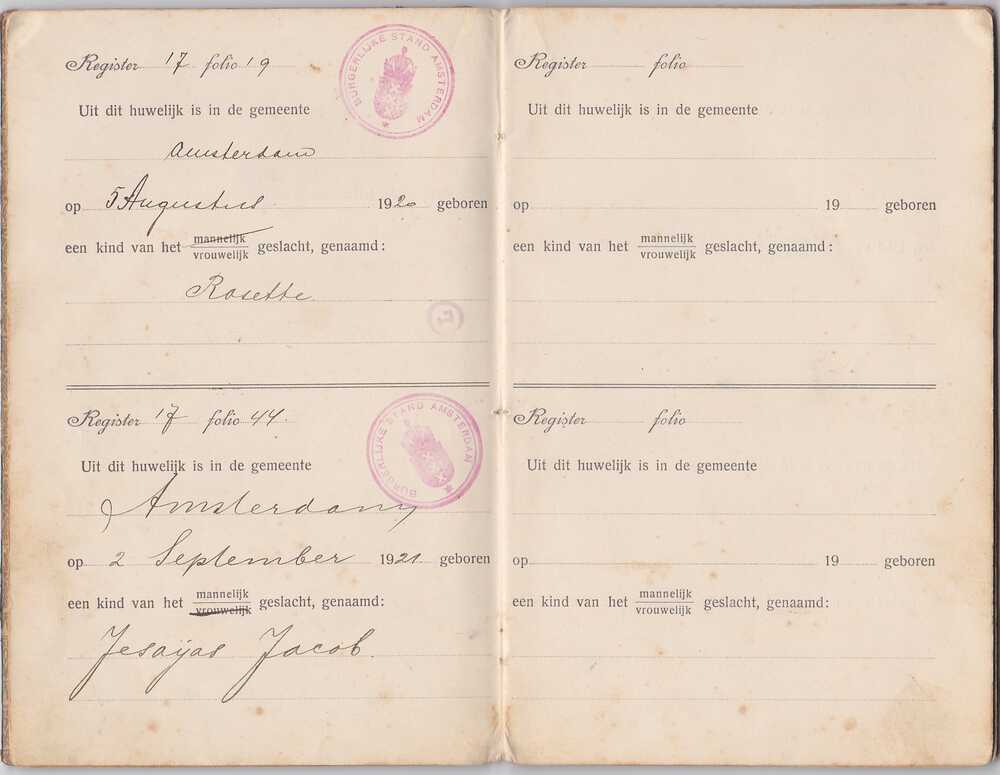 Register 17 folio 19
BURGERLIJKE STAND AMSTERDAM
Uit dit huwelijk is in de gemeente
Amsterdam
op 5 Augustus 1920 geboren
een kind van het mannelijk
vrouwelijk geslacht, genaamd:
Rosette
Register 17 folio 44.
BURGERLIJKE STAND AMSTERDAM
Uit dit huwelijk is in de gemeente
Amsterdam
op 2 September 1921 geboren
een kind van het mannelijk
vrouwelijk geslacht, genaamd:
Jesaijas Jacob.
Register folio
Uit dit huwelijk is in de gemeente
op 19 geboren
een kind van het mannelijk
vrouwelijk geslacht, genaamd:
Register folio
Uit dit huwelijk is in de gemeente
op 19 geboren
een kind van het mannelijk
vrouwelijk geslacht, genaamd: